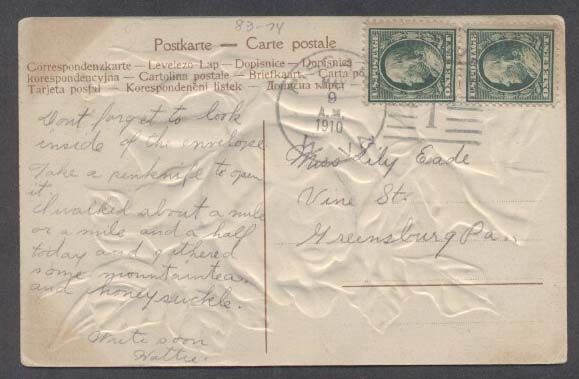 83-74
Postkarte — Carte postale
Correspondenzkarte — Levelező-Lap — Dopisnice — Dopisnica
korespondencyjna — Cartolina postale — Briefkaart — Carta po
Tarjeta postal — Korespondenční listek — Дописна карта
U.S. POSTAGE
ONE CENT
U.S. POSTAGE
ONE CENT
9
A.M.
1910
1
Dont forget to look
inside of the envelope
Take a penknife to open
it.
I walked about a mile
or a mile and a half
today and gathered
some mountaintea
and honeysuckle.
Write soon
Hattie.
Miss Lily Eade
Vine St.
Greensburg Pa.